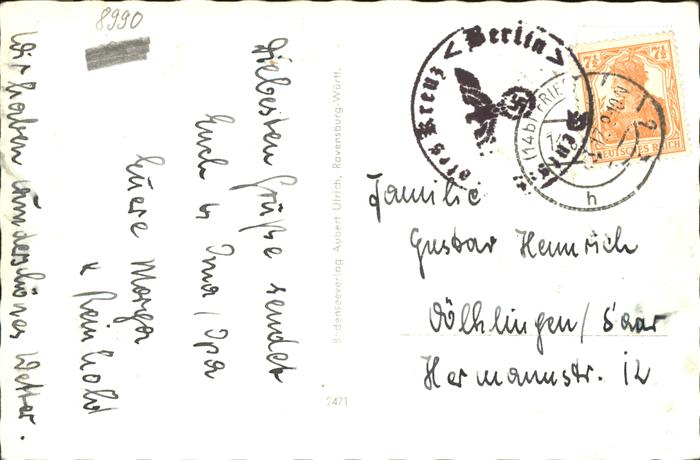 8990
Liebesten Grüße sendet
Euch u Oma / Opa
Euere Marga
u Reinhold
Wir haben wunderschönes Wetter.
Bodenseeverlag Aubert Ulrich, Ravensburg-Württ.
2471
Berlin
Kreuz
7½ 7½
DEUTSCHES REICH
(14b) FRIED
h
Familie
Gustav Heinrich
Völklingen / Saar
Hermannstr. 12